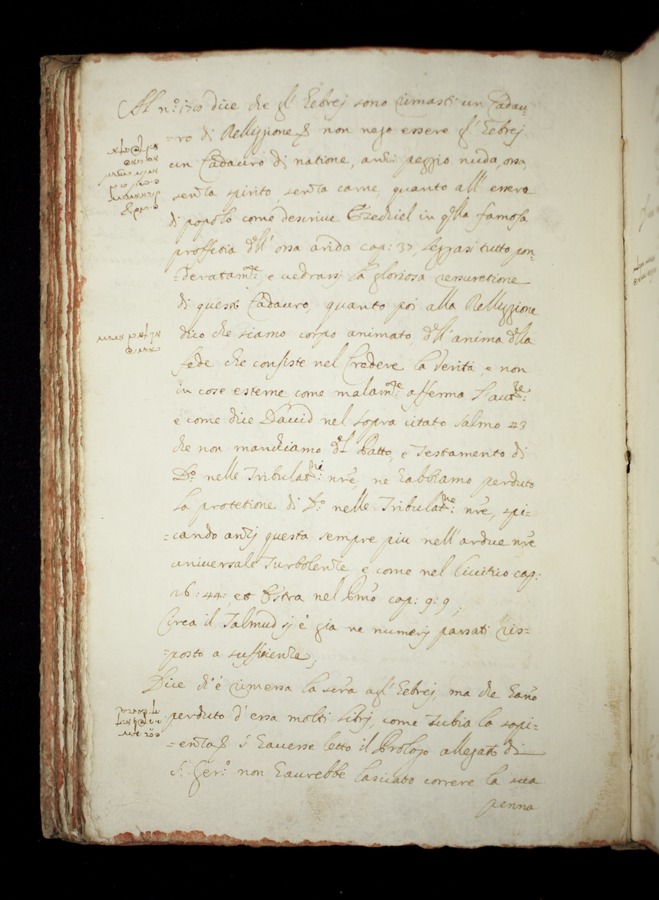 Al n.º 170 dice che gl' Eebrej sono rimasti un Cadau=
=ro di Relligione, non nego essere gl' Eebrej
un Cadauro di natione, anzi peggio nuda, ossa,
senza spirito, senza carne, quanto all' essere
di popolo come descriue Ezechiel in q.lla famosa
proffetia dell' ossa arida cap: 37, leggasi tutto pon=
=deratam.te, e uedrassi la gloriosa resuretione
di questo Cadauro, quanto poi alla Relligione
dico che siamo corpo animato, dell' anima della
fede che consiste nel Credere la Verità, e non
in cose esterne come malam.te afferma l' aut.re:
e come dice Dauid nel sopra citato salmo 43
che non manchiamo del Patto, e Testamento di
D.º nelle Tribulat.ni: nr̃e, ne habbiamo perduto
la protetione di D.º nelle Tribulat.ne: nr̃e, spi=
=cando anzj questa sempre piu nell' ardue nr̃e
uniuersali Turbolenze, e come nel Leuitico cap:
26: 44: et Estra nel Primo cap: 9: 9,
Circa il Talmud si è gia ne numerj passati ris=
=posto a suffitienza,
Dice ch' è rimessa la scr̃a agl' Eebrej, ma che hano
perduto d' essa molti librj, come Tubia la sapi=
=enza, s' hauesse letto il Prologo allegato di
S. Ger.º non haurebbe lasciato correre la sua
penna